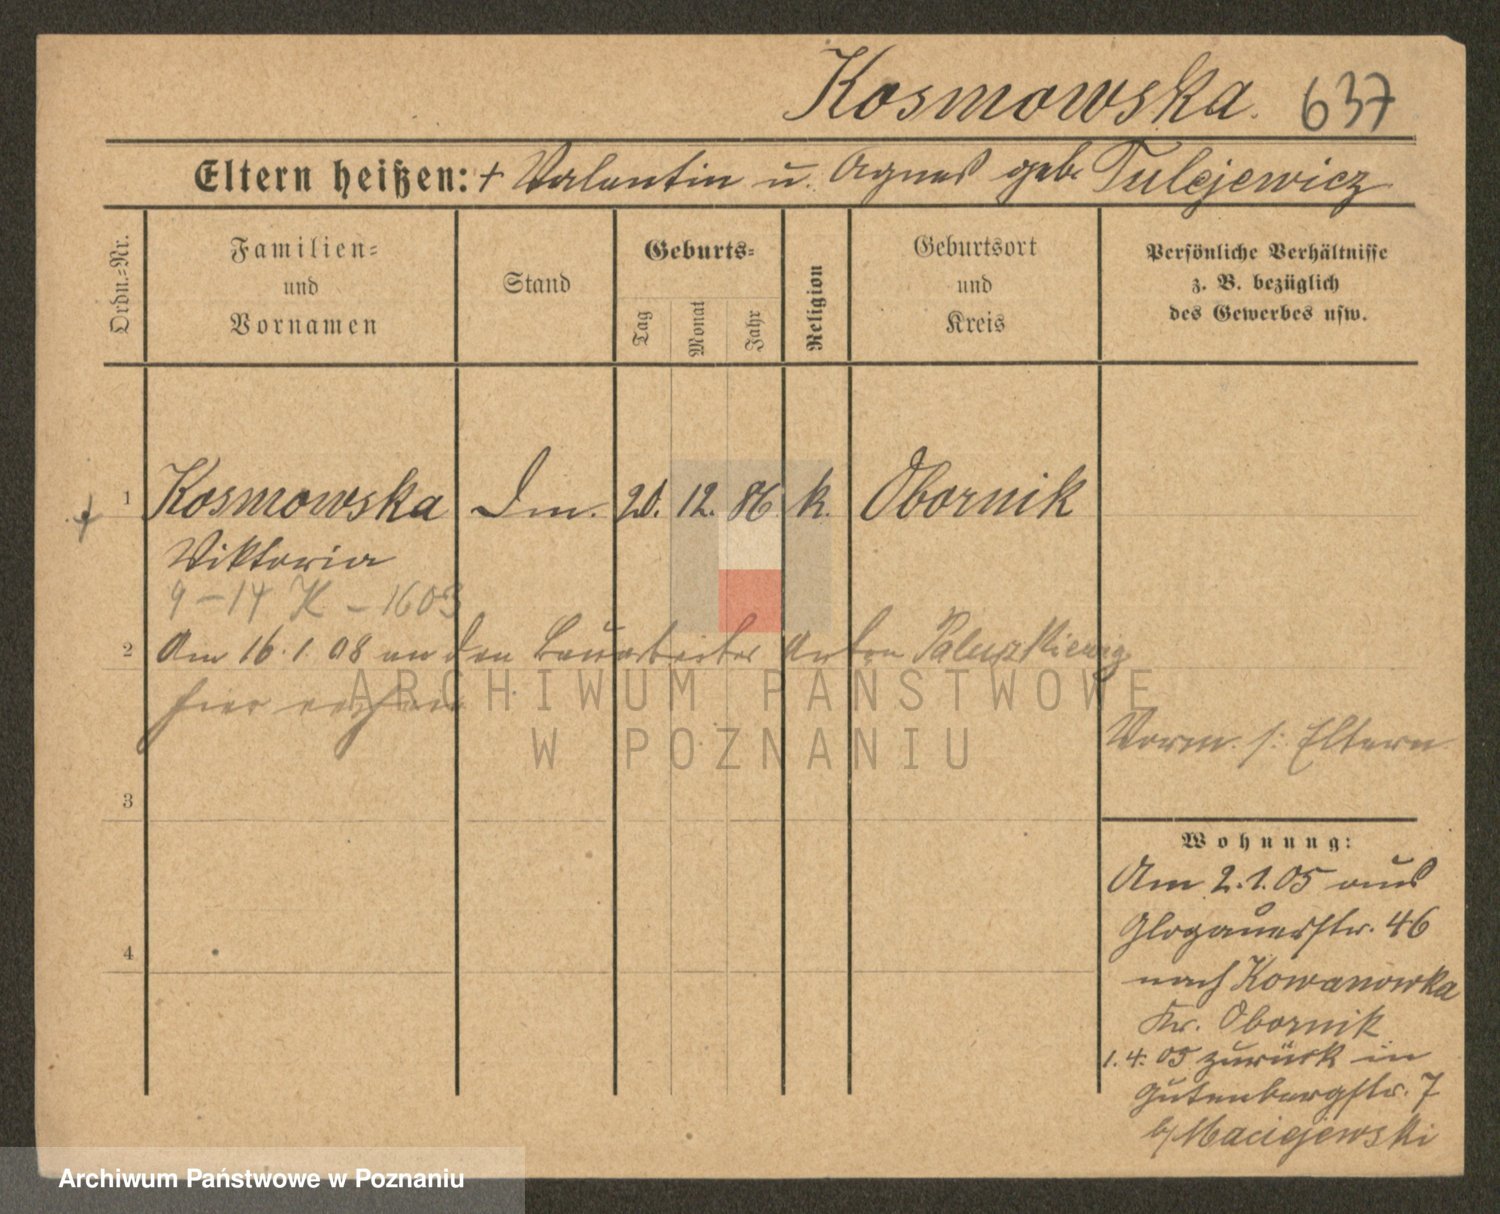 Kosmowska. 637
Eltern heißen: + Valentin u. Agnes geb. Tulejewicz
Ordn.-Nr.
Familien-
und
Vornamen
Stand
Geburts-
Tag
Monat
Jahr
Religion
Geburtsort
und
Kreis
Persönliche Verhältnisse
z. B. bezüglich
des Gewerbes usw.
1 Kosmowska Dm. 20. 12. 86 k. Obornik
Viktoria
9-14 K - 1603
2 Am 16.1.08 an den Bauarbeiter Anton
hier
ARCHIWUM PAŃSTWOWE
W POZNANIU
Vorm. s: Eltern
3
4
Wohnung:
Am 2.1.05 aus
Glogauerstr. 46
nach Kowanowka
Kr. Obornik
1.4.05 zurück in
Gutenbergstr. 7
b/Maciejewski
Archiwum Państwowe w Poznaniu